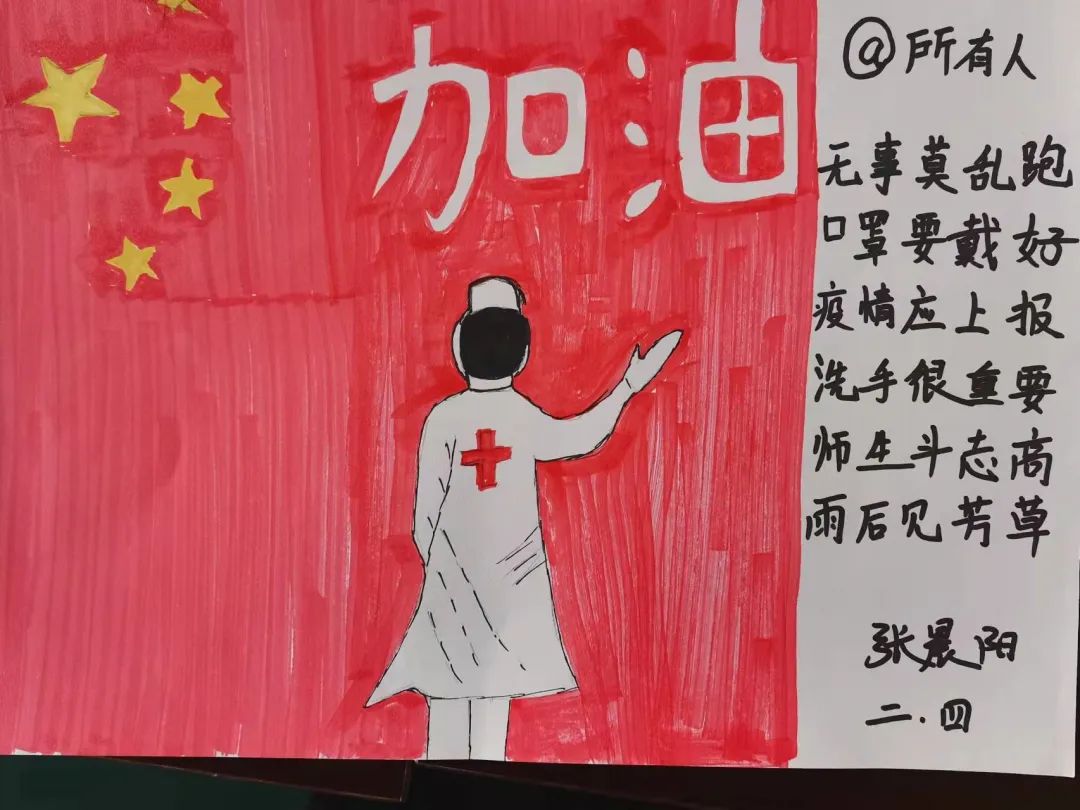 加油
@所有人
无事莫乱跑
口罩要戴好
疫情应上报
洗手很重要
师生斗志高
雨后见芳草
张晨阳
二.四